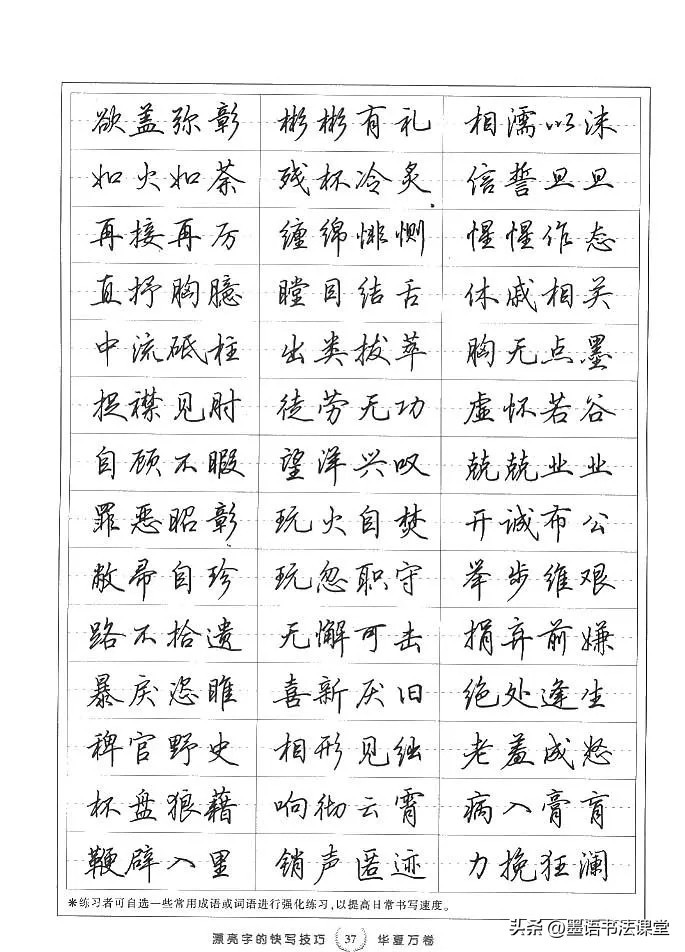 欲盖弥彰 彬彬有礼 相濡以沫
如火如荼 残杯冷炙 信誓旦旦
再接再厉 缠绵悱恻 惺惺作态
直抒胸臆 瞠目结舌 休戚相关
中流砥柱 出类拔萃 胸无点墨
捉襟见肘 徒劳无功 虚怀若谷
自顾不暇 望洋兴叹 兢兢业业
罪恶昭彰 玩火自焚 开诚布公
敝帚自珍 玩忽职守 举步维艰
路不拾遗 无懈可击 捐弃前嫌
暴戾恣睢 喜新厌旧 绝处逢生
稗官野史 相形见绌 老羞成怒
杯盘狼藉 响彻云霄 病入膏肓
鞭辟入里 销声匿迹 力挽狂澜
※练习者可自选一些常用成语或词语进行强化练习,以提高日常书写速度。
漂亮字的快写技巧 37 华夏万卷
头条@墨语书法课堂